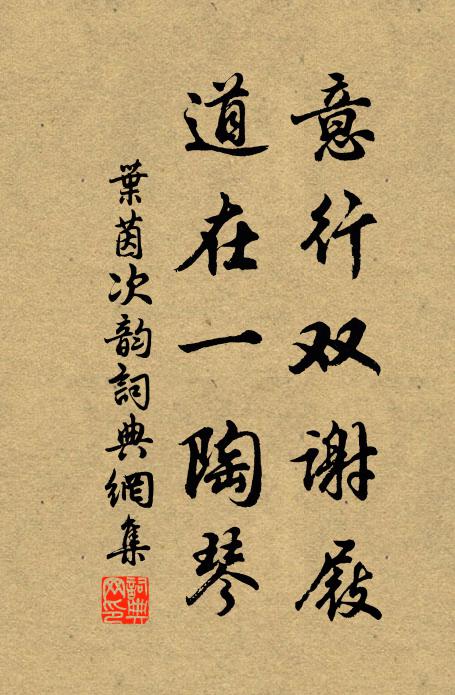 意行双谢屐
道在一陶琴
葉茵次韵詞典網集
詞典网印